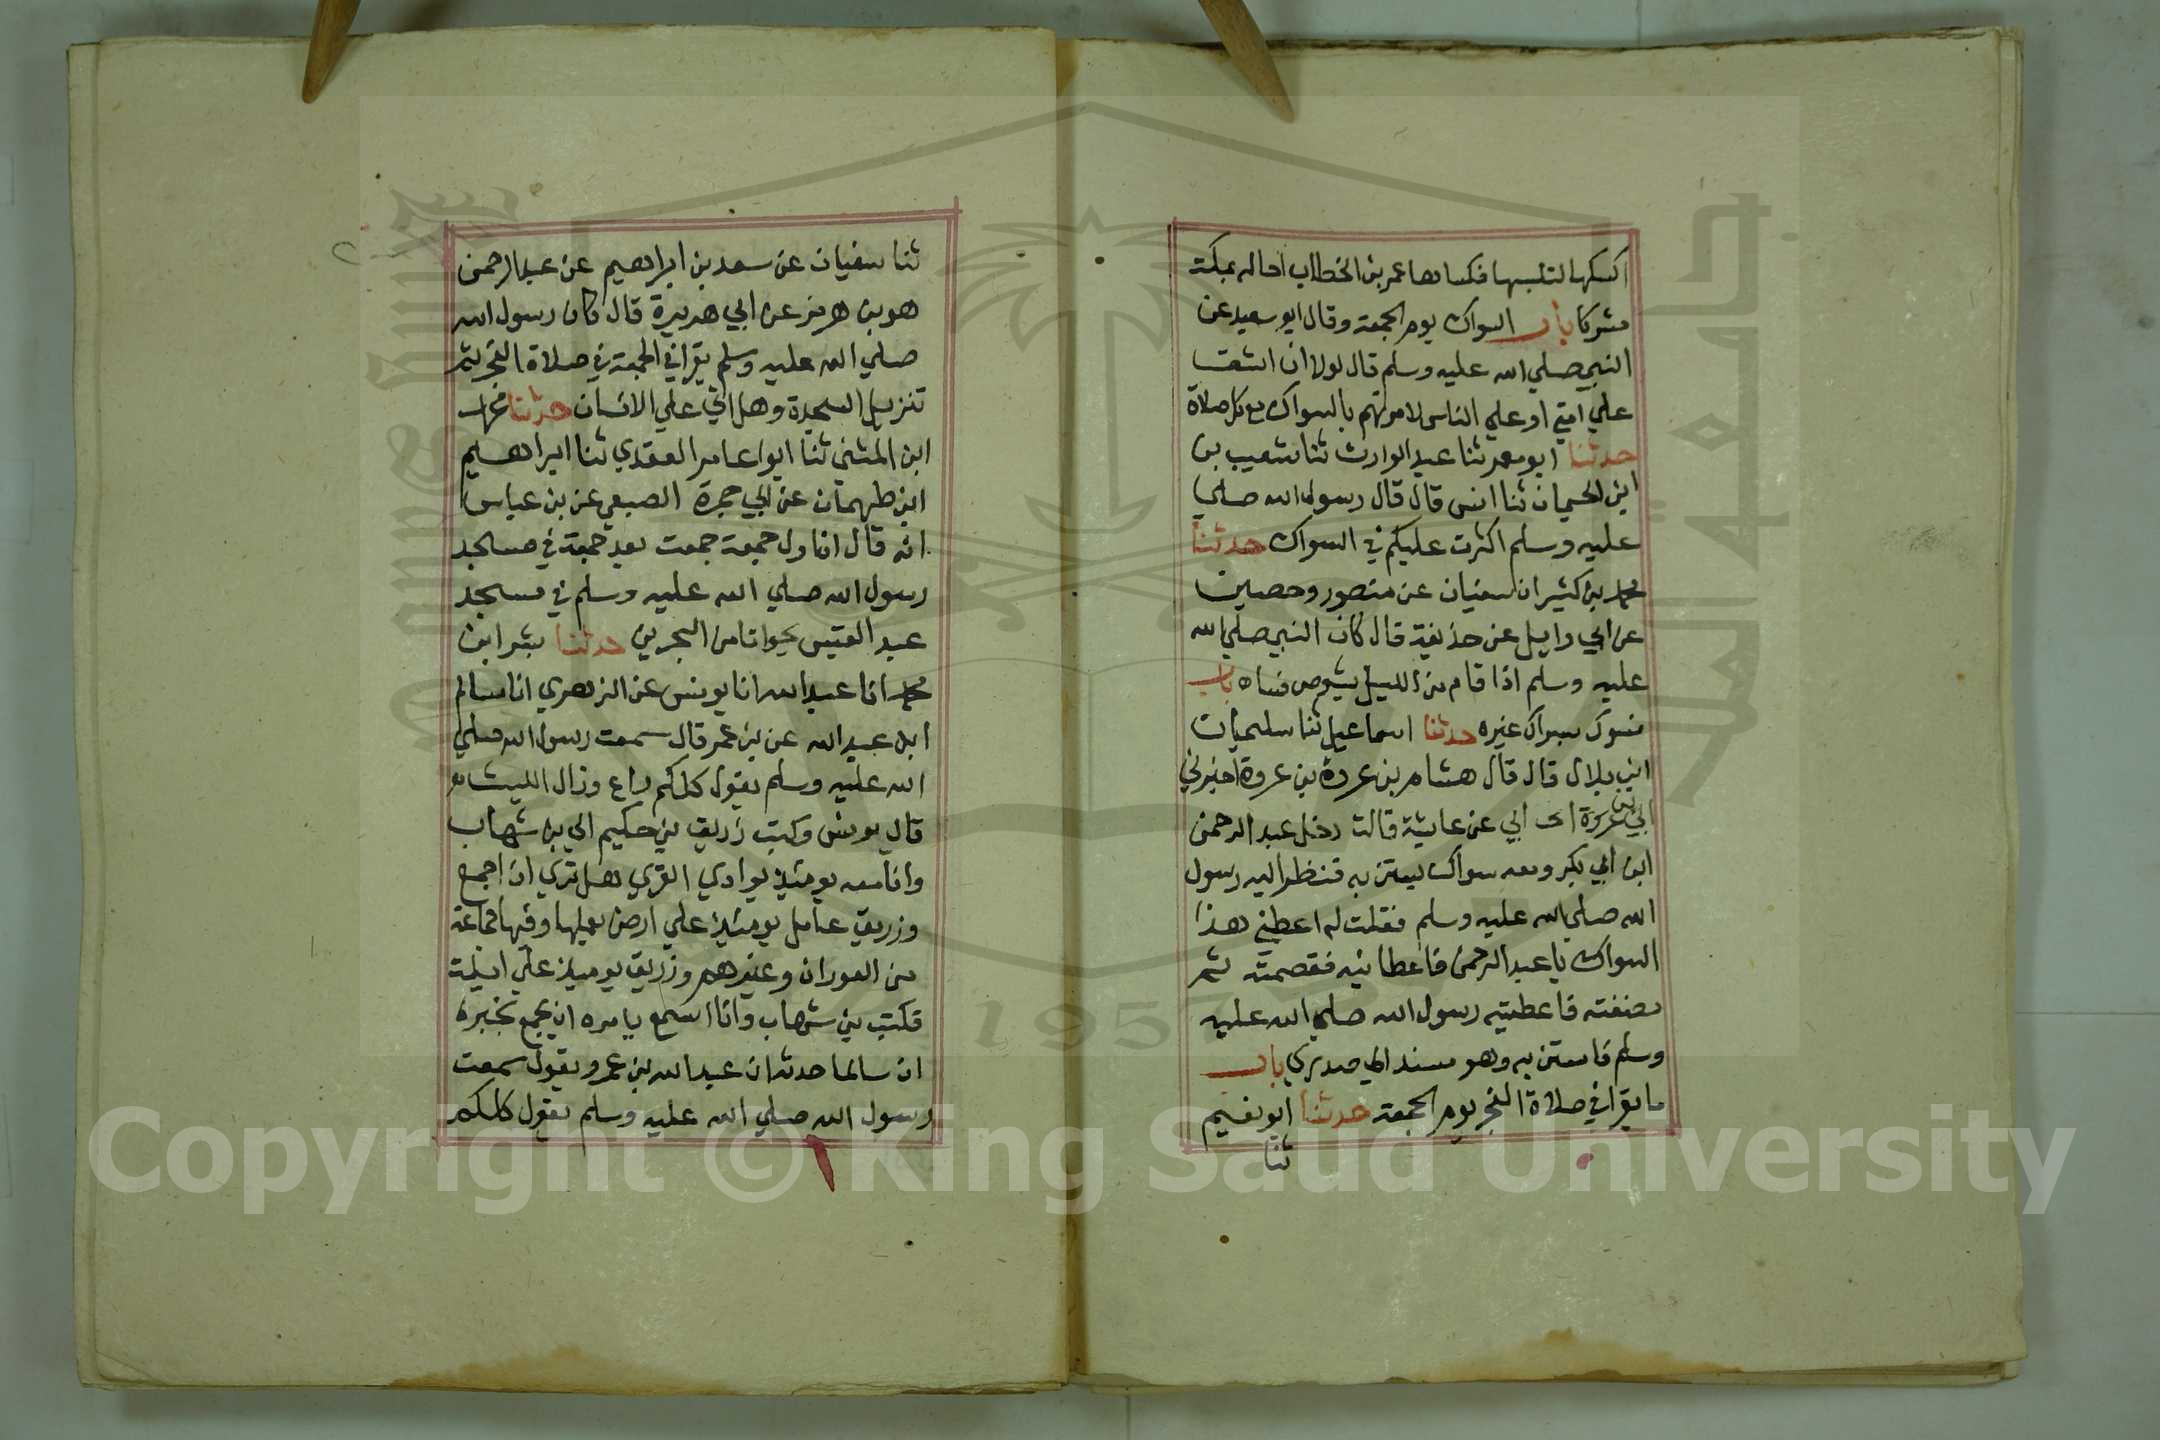 اكسكها لتلبسها فكساها عمر بن الخطاب اخا له بمكة
مشركا باب السواك يوم الجمعة وقال ابو سعيد عن
النبي صلي الله عليه وسلم قال لولا ان اشق
علي امتي او علي الناس لامرتهم بالسواك مع كل صلاة
حدثنا ابو معمر ثنا عبد الوارث ثنا شعيب بن
ابن الحبحان ثنا انس قال قال رسول الله صلي
عليه وسلم اكثرت عليكم في السواك حدثنا
محمد بن كثير انا سفيان عن منصور وحصين
عن ابي وايل عن حذيفة قال كان النبي صلي الله
عليه وسلم اذا قام من الليل يشوص فاه باب
من سوك بسواك غيره حدثنا اسماعيل ثنا سليمان
ابن بلال قال قال هشام بن عروة بن عروة اخبرني
ابي بن عروة ابي عن عايشة قالت دخل عبد الرحمن
ابن ابي بكر ومعه سواك يستن به فنظر اليه رسول
الله صلي الله عليه وسلم فقلت له اعطني هذا
السواك يا عبد الرحمن فاعطانيه فقصمته ثم
مضغته فاعطيته رسول الله صلي الله عليه
وسلم فاستن به وهو مسند الي صدري باب
ما يقرا في صلاة الفجر يوم الجمعة حدثنا ابو نعيم
ثنا
ثنا سفيان عن سعد بن ابراهيم عن عبد الرحمن
هو بن هرمز عن ابي هريرة قال كان رسول الله
صلي الله عليه وسلم يقرا في الجمعة في صلاة الفجر
تنزيل السجدة وهل اتي علي الانسان حدثنا محمد
ابن المثني ثنا ابوا عامر العقدي ثنا ابراهيم
ابن طهمان عن ابي جمرة الضبعي عن بن عباس
انه قال ان اول جمعة جمعت بعد جمعة في مسجد
رسول الله صلي الله عليه وسلم في مسجد
عبد القيس بجواثا من البحرين حدثنا بشر ابن
محمد انا عبد الله انا يونس عن الزهري انا سالم
ابن عبد الله عن بن عمر قال سمعت رسول الله صلي
الله عليه وسلم يقول كلكم راع وزاد الليث
قال يونس وكتب زريق بن حكيم الي بن شهاب
وانا معه يوميذ بوادي القري هل تري ان اجمع
وزريق عامل يوميذ علي ارض يعملها وفيها جماعة
من السودان وغيرهم وزريق يوميذ علي ايلة
فكتب بن شهاب وانا اسمع يامره ان يجمع يخبره
ان سالما حدثه ان عبد الله بن عمر ويقول سمعت
رسول الله صلي الله عليه وسلم يقول كلكم
1957
Copyright © King Saud University